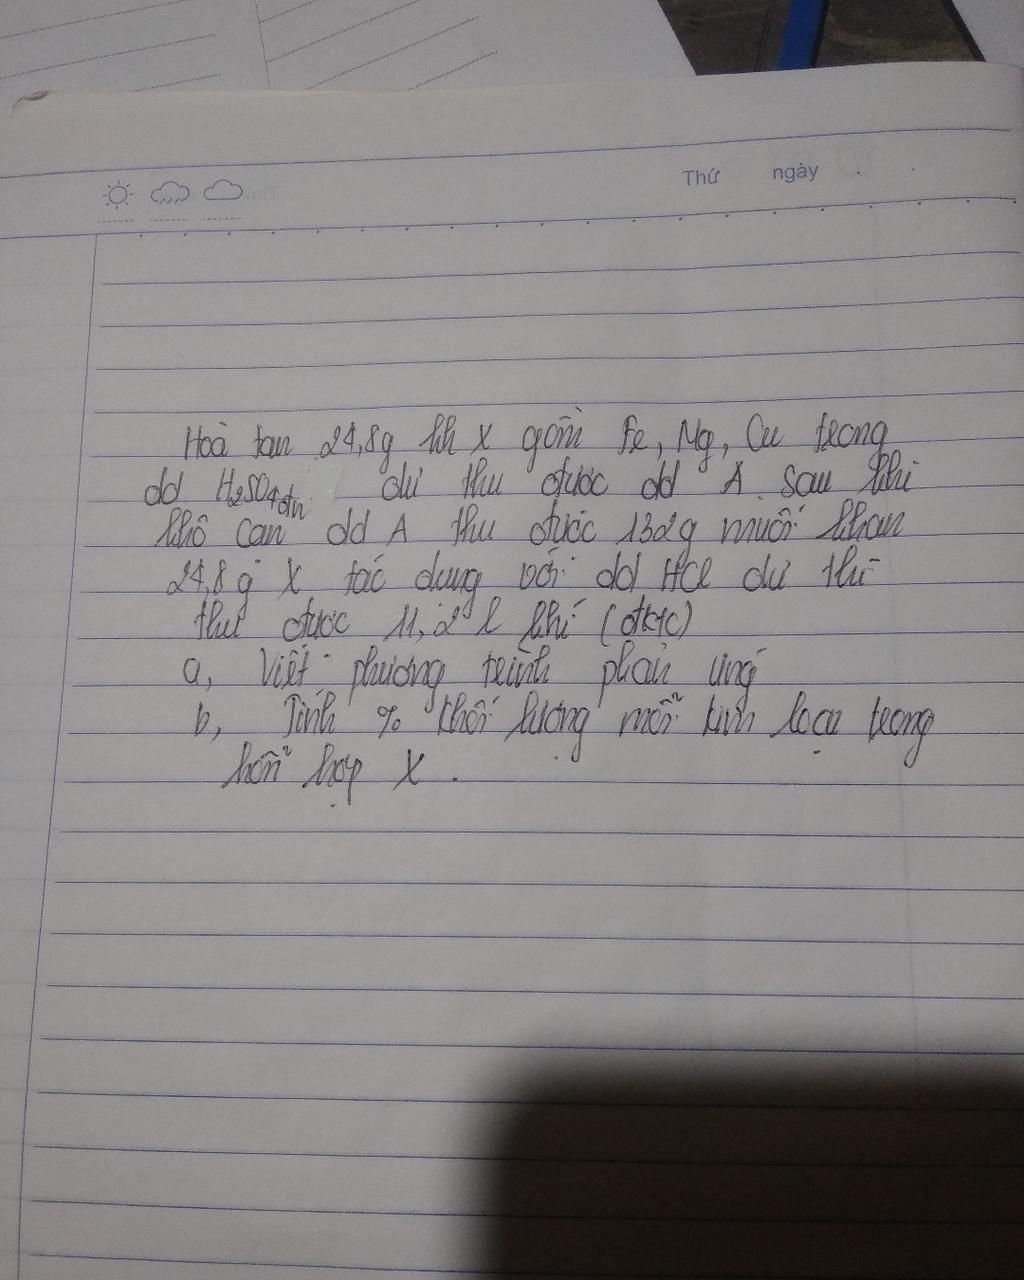 Thứ ngày
Hoà tan 24,8g hh X gồm Fe, Mg, Cu trong
dd H₂SO₄đn dư thu được dd A. Sau khi
khô cạn dd A thu được 132g muối khan
24,8g X tác dụng với dd HCl dư thì
thu được 11,2 l khí (đktc)
a, Viết phương trình phản ứng
b, Tính % khối lượng mỗi kim loại trong
hỗn hợp X.